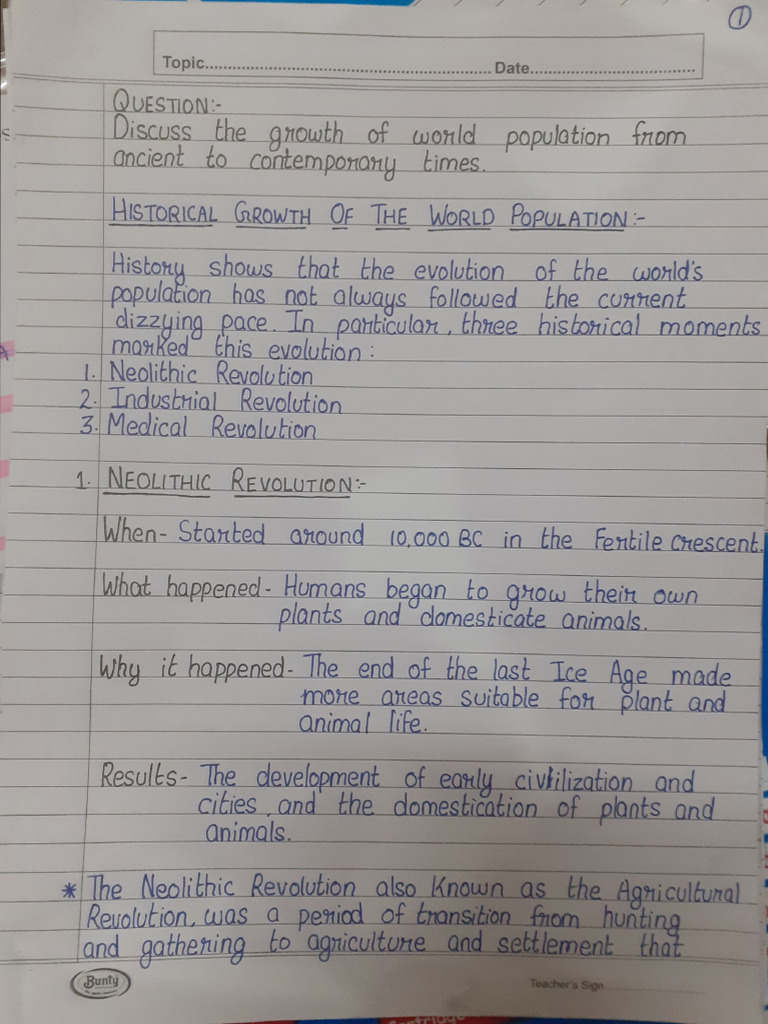 ①
Topic.......................................................................... Date...........................................
QUESTION:-
Discuss the growth of world population from
ancient to contemporary times.
HISTORICAL GROWTH OF THE WORLD POPULATION:-
History shows that the evolution of the world's
population has not always followed the current
dizzying pace. In particular, three historical moments
marked this evolution:
1. Neolithic Revolution
2. Industrial Revolution
3. Medical Revolution
1. NEOLITHIC REVOLUTION:-
When- Started around 10,000 BC in the Fertile crescent.
What happened- Humans began to grow their own
plants and domesticate animals.
Why it happened- The end of the last Ice Age made
more areas suitable for plant and
animal life.
Results- The development of early civilization and
cities, and the domestication of plants and
animals.
* The Neolithic Revolution also known as the Agricultural
Revolution, was a period of transition from hunting
and gathering to agriculture and settlement that
Bunty
Teacher's Sign....................